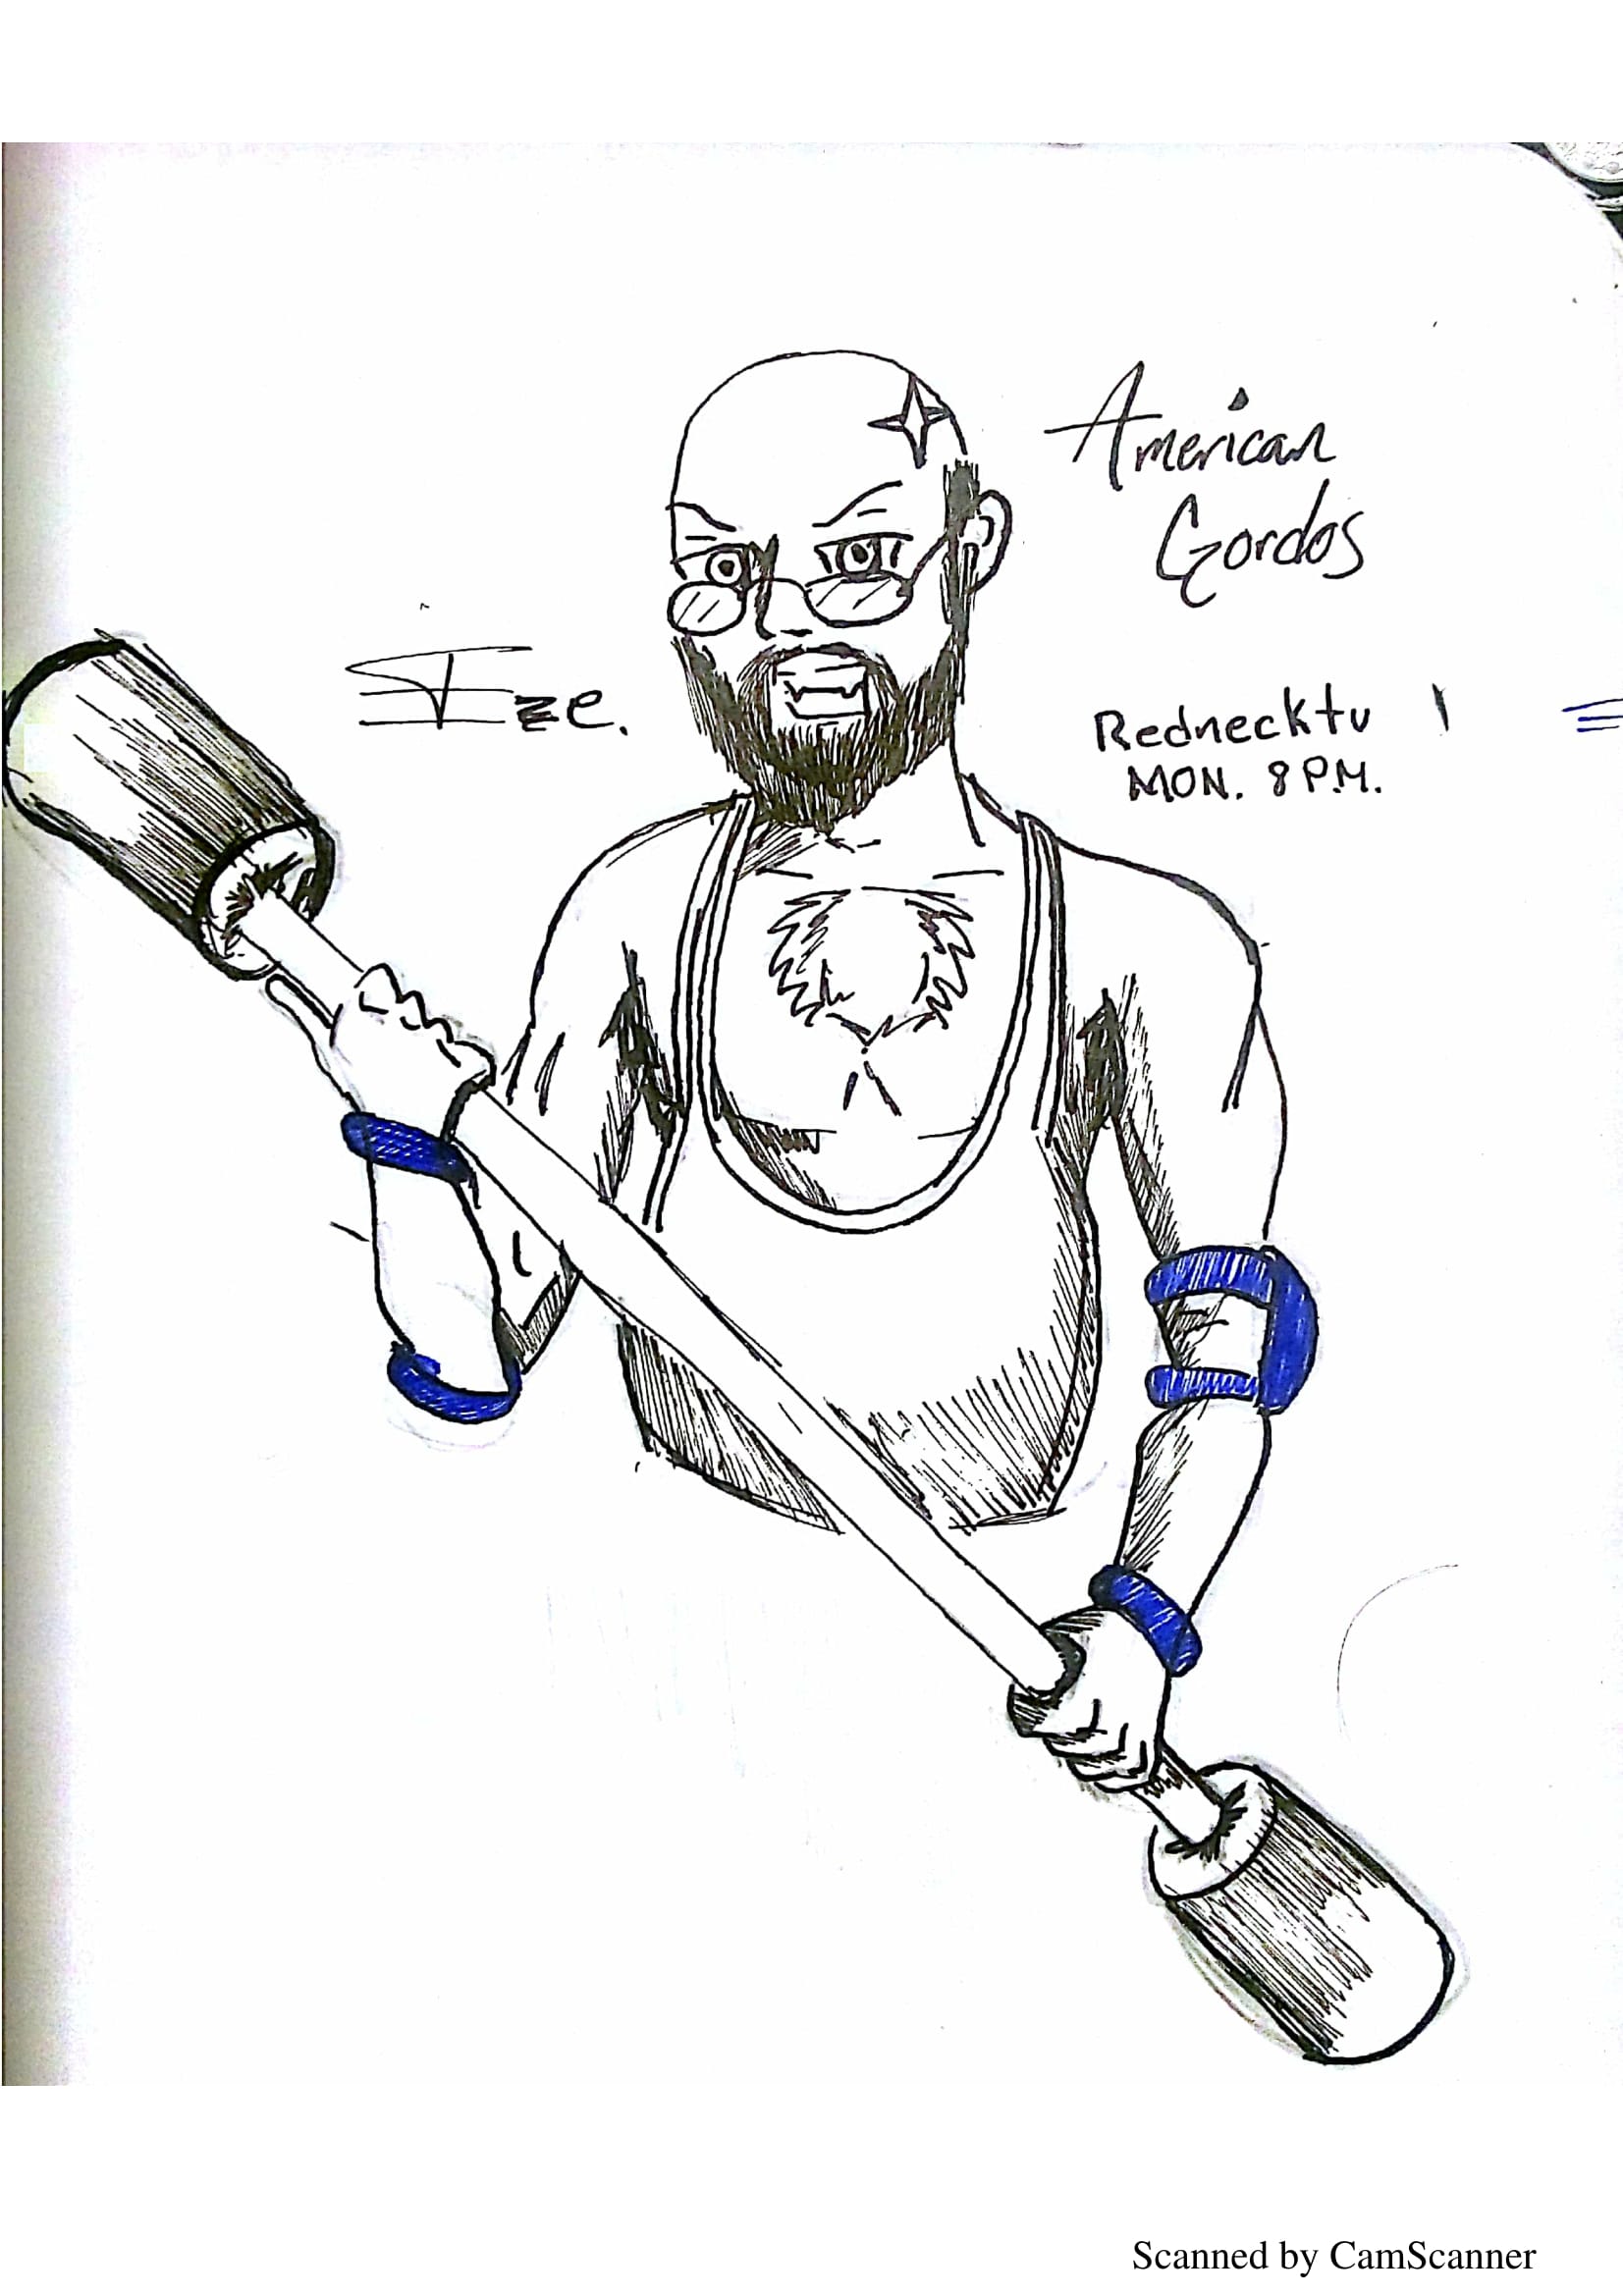 American
Gordos
Ize.
Rednecktv
MON. 8 P.M.
Scanned by CamScanner